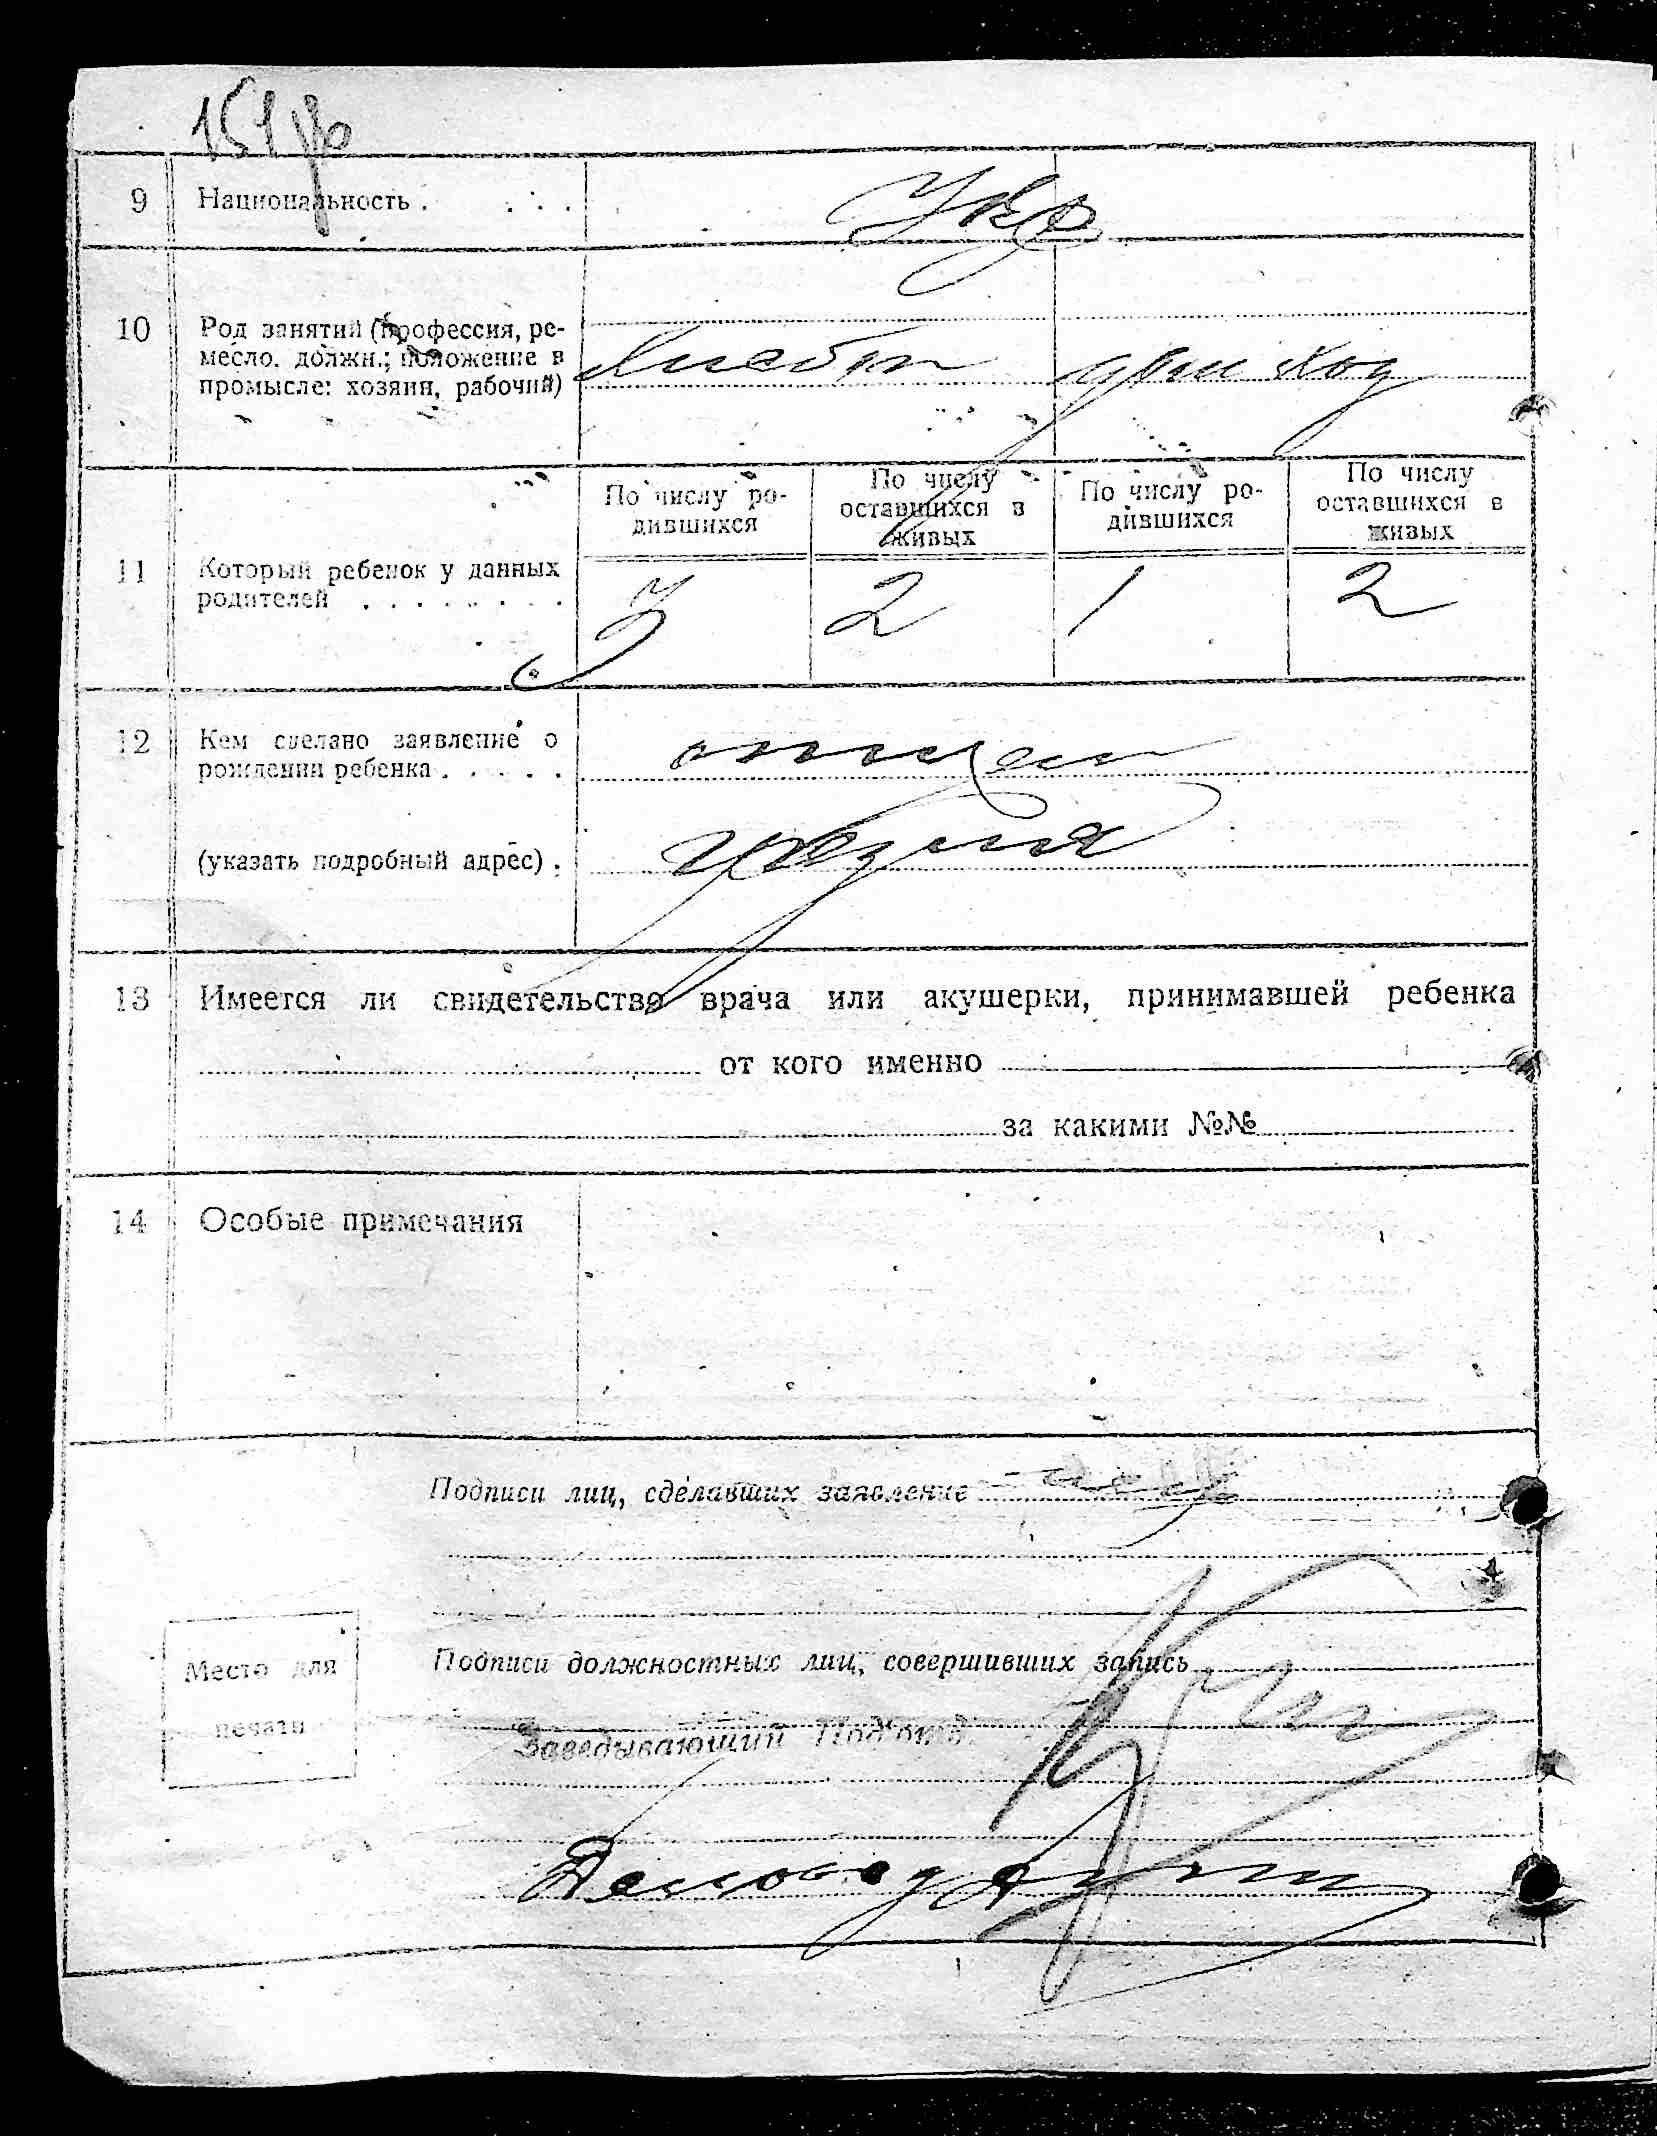 9 Национальность . . . . Укр
10 Род занятий (профессия, ре-
месло. должн.; положение в
промысле: хозяин, рабочий)
при
По числу ро-
дившихся
По числу
оставшихся в
живых
По числу ро-
дившихся
По числу
оставшихся в
живых
11 Который ребенок у данных
родителей . . . . . . . .
3 2 1 2
12 Кем сделано заявление о
рождении ребенка . . . . . отцем
(указать подробный адрес) .
13 Имеется ли свидетельство врача или акушерки, принимавшей ребенка
от кого именно
за какими №№
14 Особые примечания
Подписи лиц, сделавших заявление
Подписи должностных лиц, совершивших запись
Место для
печати
Заведывающий Под'отд.
Деловод